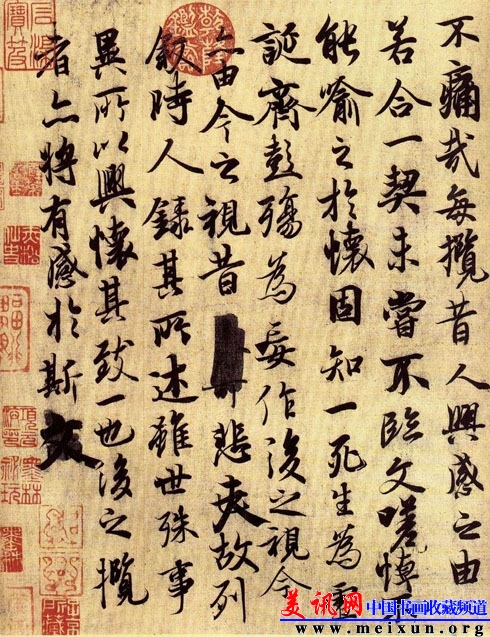 不痛哉每攬昔人興感之由
若合一契未嘗不臨文嗟悼不
能喻之於懷固知一死生為虛
誕齊彭殤為妄作後之視今
亦由今之視昔 悲夫故列
敘時人錄其所述雖世殊事
異所以興懷其致一也後之攬
者亦將有感於斯文
美讯网 中国书画收藏频道
www.meixun.org